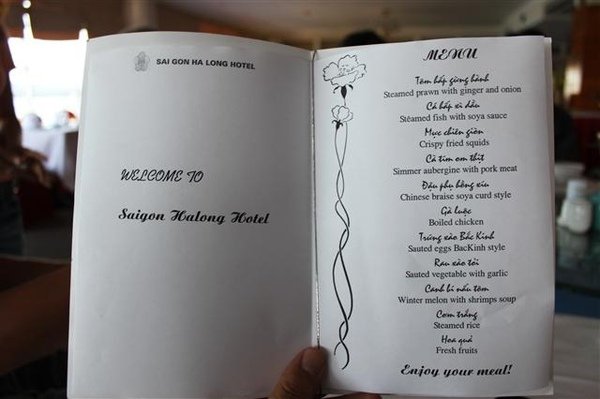 SAI GON HA LONG HOTEL
WELCOME TO
Saigon Halong Hotel
MENU
Tôm hấp gừng hành
Steamed prawn with ginger and onion
Cá hấp xì dầu
Stêamed fish with soya sauce
Mực chiên giòn
Crispy fried squids
Cà tím om thịt
Simmer aubergine with pork meat
Đậu phụ hồng xíu
Chinese braise soya curd style
Gà luộc
Boiled chicken
Trứng xào Bắc Kinh
Sauted eggs BacKinh style
Rau xào tỏi
Sauted vegetable with garlic
Canh bí nấu tôm
Winter melon with shrimps soup
Cơm trắng
Steamed rice
Hoa quả
Fresh fruits
Enjoy your meal!